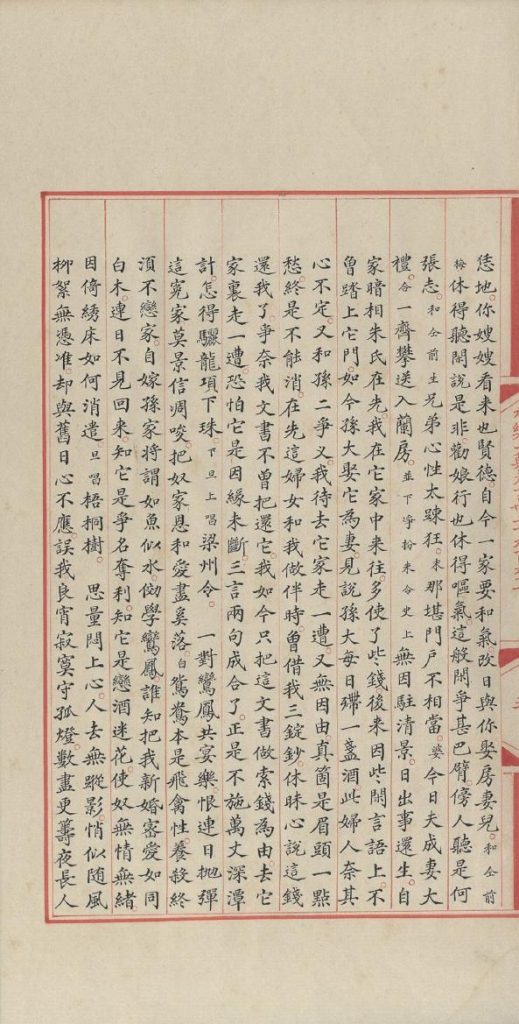 恁地你嫂嫂看來也賢德自今一家要和氣改日與你娶房妻兒和仝前
扮休得聽閒說是非勸娘行也休得嘔氣這般閒爭甚巴臂傍人聽是何
張志和仝前生兄弟心性太踈狂末那堪門戶不相當婆今日夫成妻大
禮合一齊攀送入蘭房並下淨扮朱令史上無因駐清景日出事還生自
家暗相朱氏在先我在它家中来往多使了些錢後来因些閒言語上不
曾踏上它門如今孫大娶它為妻見說孫大每日殢一盞酒此婦人奈其
心不定又和孫二爭叉我待去它家走一遭又無因由真箇是眉頭一點
愁終是不能消在先這婦女和我做伴時曾借我三錠鈔休昧心說這錢
還我了爭奈我文書不曾把還它我如今只把這文書做索錢為由去它
家裏走一遭恐怕它是因緣未斷三言兩句成合了正是不施萬丈深潭
計怎得驪龍項下珠下旦上唱梁州令 一對鸞鳳共宴樂恨連日抛彈
這寃家莫景信凋唆把奴家恩和愛盡奚落白鴛鴦本是飛禽性養殺終
須不戀家自嫁孫家將謂如魚似水傚學鸞鳳誰知把我新婚密愛如同
白木連日不見回来知它是爭名奪利知它是戀酒迷花使奴無情無緒
因倚綉床如何消遣旦唱梧桐樹 思量悶上心人去無蹤影悄似随風
柳絮無憑准却與舊日心不應誤我良宵寂寞守孤燈數盡更籌夜長人